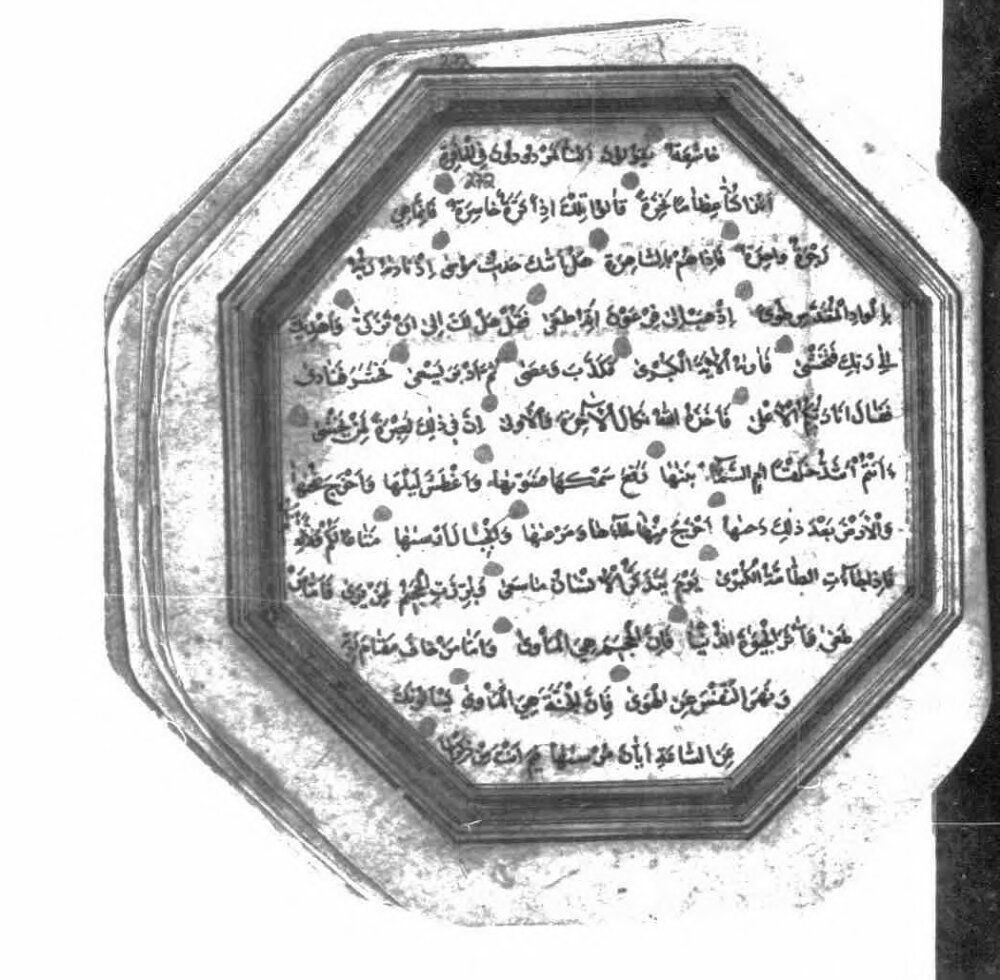 خَاشِعَةٌ يَقُولُونَ ءَاِنَّا لَمَرْدُودُونَ فِي الْحَافِرَةِ
272
ءَاِذَا كُنَّا عِظَامًا نَخِرَةً قَالُوا تِلْكَ اِذًا كَرَّةٌ خَاسِرَةٌ فَاِنَّمَا هِيَ
زَجْرَةٌ وَاحِدَةٌ فَاِذَا هُمْ بِالسَّاهِرَةِ هَلْ اَتٰىكَ حَدِيثُ مُوسٰى اِذْ نَادٰىهُ رَبُّهُ
بِالْوَادِ الْمُقَدَّسِ طُوًى اِذْهَبْ اِلٰى فِرْعَوْنَ اِنَّهُ طَغٰى فَقُلْ هَلْ لَكَ اِلٰى اَنْ تَزَكّٰى وَاَهْدِيَكَ
اِلٰى رَبِّكَ فَتَخْشٰى فَاَرٰىهُ الْاٰيَةَ الْكُبْرٰى فَكَذَّبَ وَعَصٰى ثُمَّ اَدْبَرَ يَسْعٰى فَحَشَرَ فَنَادٰى
فَقَالَ اَنَا رَبُّكُمُ الْاَعْلٰى فَاَخَذَهُ اللّٰهُ نَكَالَ الْاٰخِرَةِ وَالْاُولٰى اِنَّ فِي ذٰلِكَ لَعِبْرَةً لِمَنْ يَخْشٰى
ءَاَنْتُمْ اَشَدُّ خَلْقًا اَمِ السَّمَاءُ بَنٰىهَا رَفَعَ سَمْكَهَا فَسَوّٰىهَا وَاَغْطَشَ لَيْلَهَا وَاَخْرَجَ ضُحٰىهَا
وَالْاَرْضَ بَعْدَ ذٰلِكَ دَحٰىهَا اَخْرَجَ مِنْهَا مَاءَهَا وَمَرْعٰىهَا وَالْجِبَالَ اَرْسٰىهَا مَتَاعًا لَكُمْ وَلِاَنْعَامِكُمْ
فَاِذَا جَاءَتِ الطَّامَّةُ الْكُبْرٰى يَوْمَ يَتَذَكَّرُ الْاِنْسَانُ مَا سَعٰى وَبُرِّزَتِ الْجَحِيمُ لِمَنْ يَرٰى فَاَمَّا مَنْ
طَغٰى وَاٰثَرَ الْحَيٰوةَ الدُّنْيَا فَاِنَّ الْجَحِيمَ هِيَ الْمَأْوٰى وَاَمَّا مَنْ خَافَ مَقَامَ رَبِّهِ
وَنَهَى النَّفْسَ عَنِ الْهَوٰى فَاِنَّ الْجَنَّةَ هِيَ الْمَأْوٰى يَسْـَٔلُونَكَ
عَنِ السَّاعَةِ اَيَّانَ مُرْسٰىهَا فِيمَ اَنْتَ مِنْ ذِكْرٰىهَا